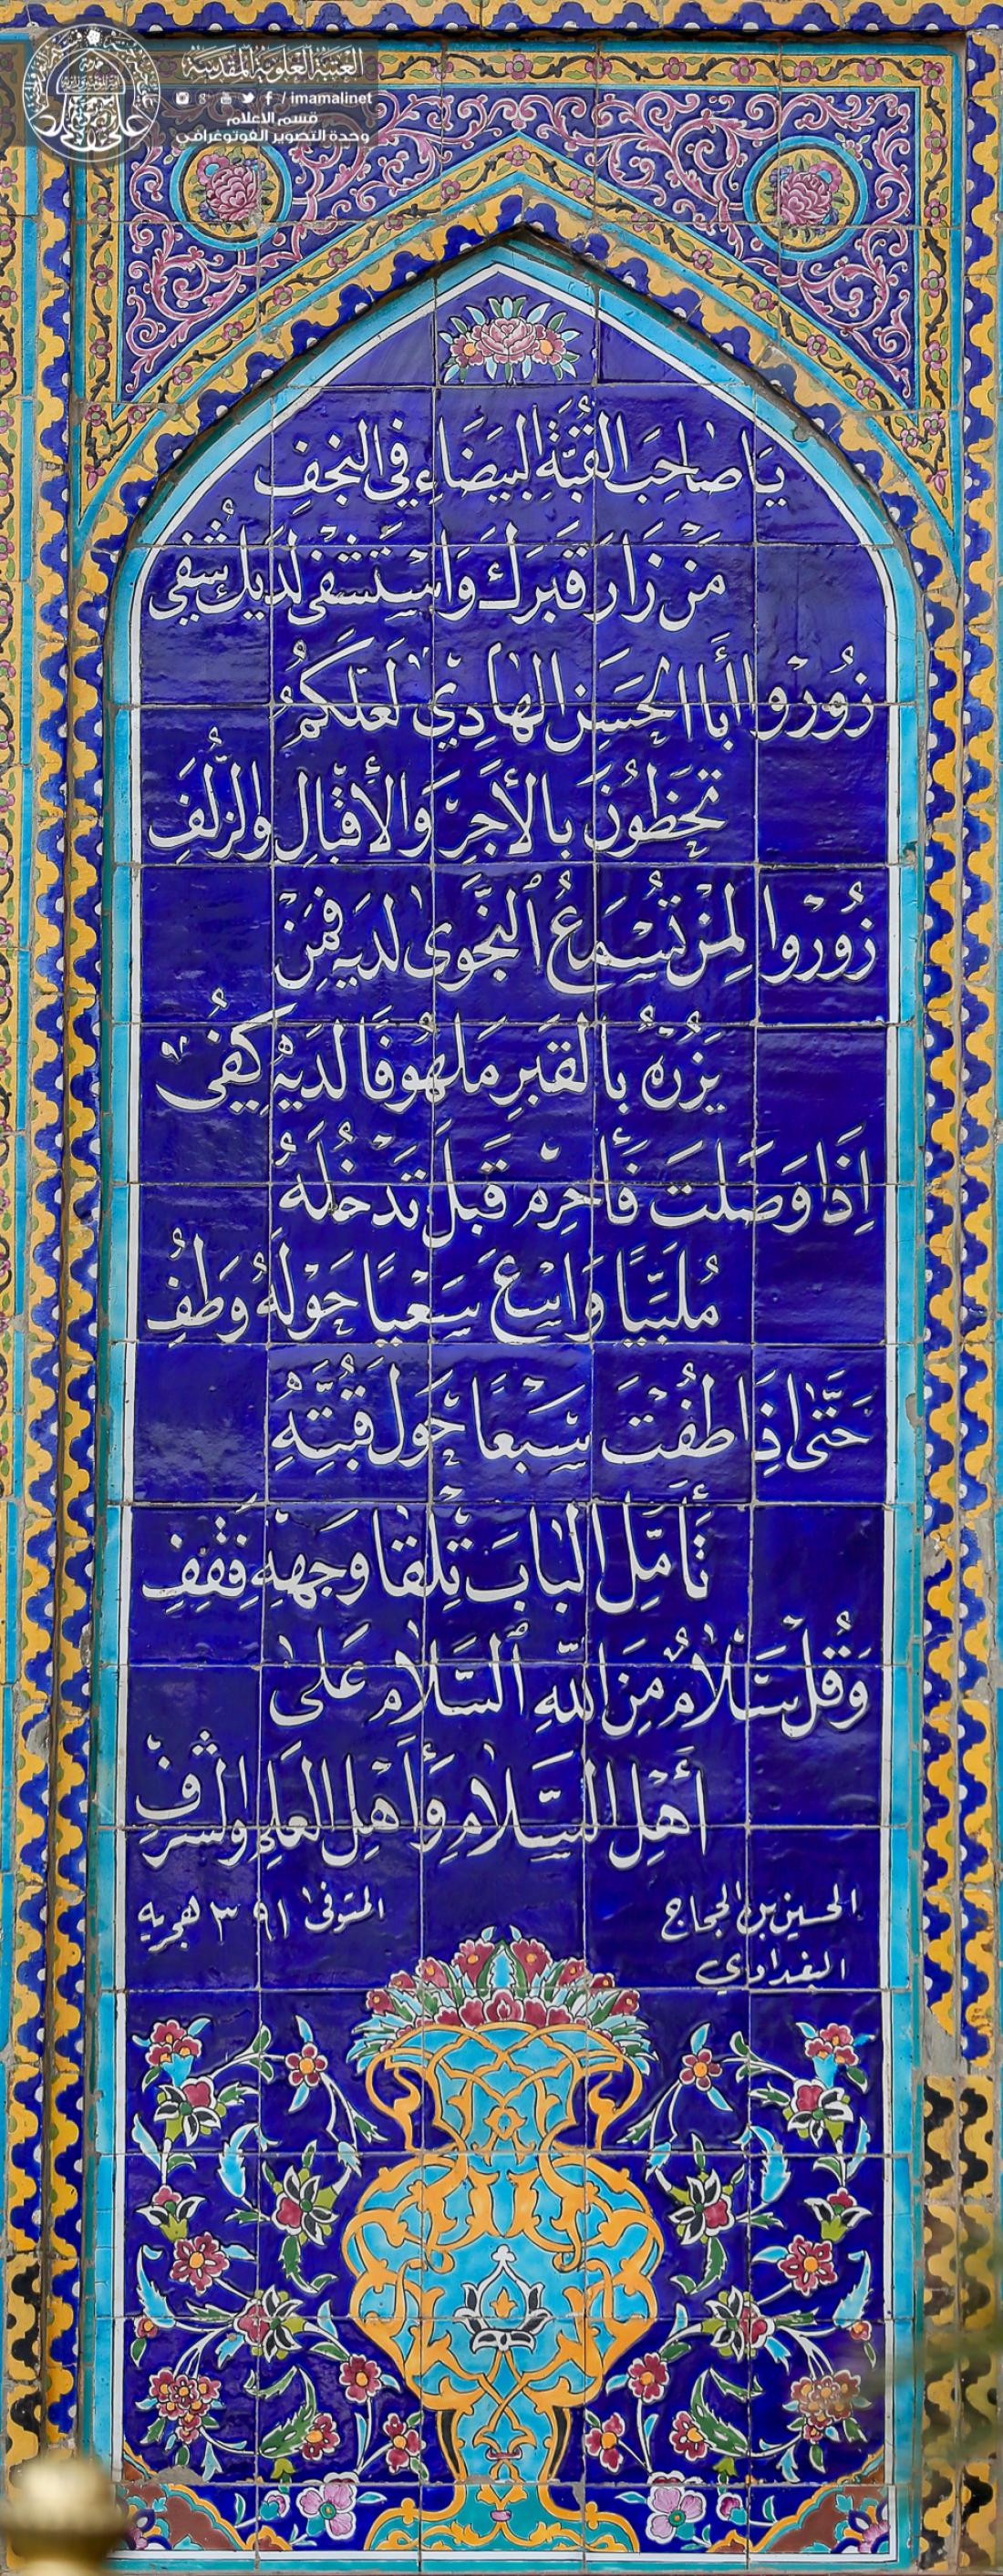 العتبة العلوية المقدسة
/ imamalinet
قسم الاعلام
وحدة التصوير الفوتوغرافي
يَا صَاحِبَ القُبَّةِ البَيضَاءِ في النجفِ
مَنْ زَارَ قَبرَكَ وَاسْتَشفى لديك شُفي
زُورُوا أبا الحَسَنِ الهادِي لَعَلَّكُمُ
تحَظونَ بالأجرِ وَالأقبالِ والزُّلَفِ
زُورُوا لِمَنْ تُسْمَعُ النَّجوى لديهِ فمَنْ
يَزُرْهُ بالقَبرِ مَلهُوفَا لدَيهُ كُفي
اِذَا وَصَلتَ فَأحرِمْ قَبلَ تَدْخُلَهُ
مُلَبِّيَا وَاسْعَ سَعْيَا حَوْلَهُ وَطُفِ
حَتَّى اِذَا طُفْتَ سَبْعَا حَولَ قُبَّتِهِ
تَأمَّلِ البَابَ تِلْقَا وَجههِ فَقِفِ
وَقُلْ سَلَامٌ مِنَ اللّٰهِ السَّلامِ عَلىٰ
أهْلِ السَّلامِ وَأهْلِ العلمِ والشرفِ
الحسين بن الحجاج المتوفى ٣٩١ هجريه
البغدادي